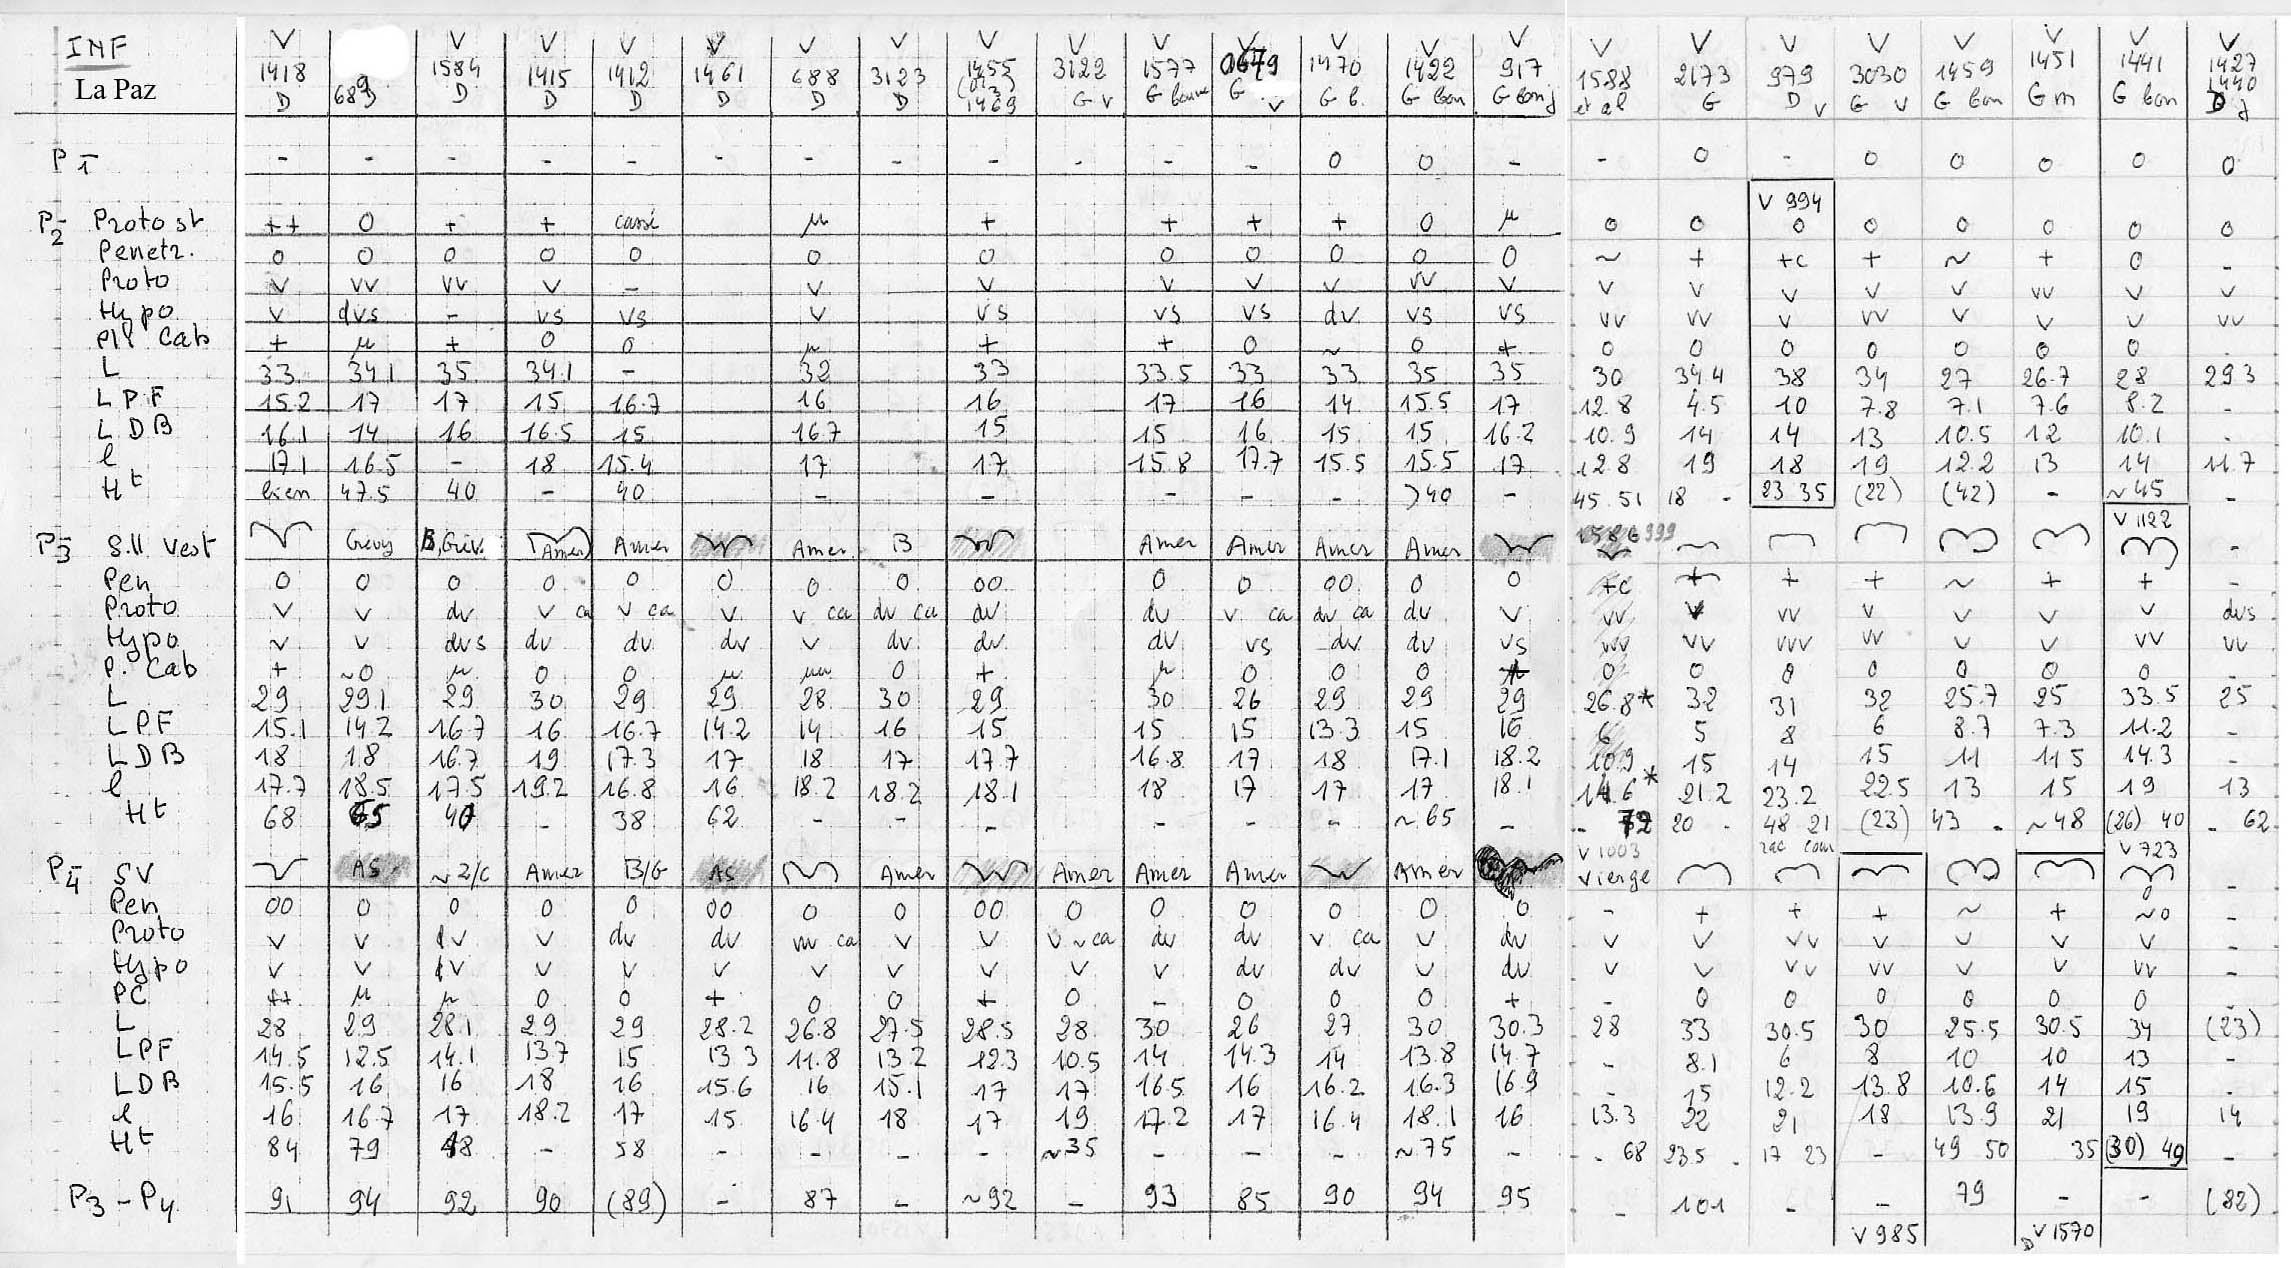 INF
La Paz
V V V V V V V V V V V V V V V V V V V V V V
1418 689 1584 1415 1412 1461 688 3123 1455 3122 1577 0679 1470 1422 917 1588 2173 979 3030 1459 1451 1441 1427
1469 1440
D D D D D D D G V G bonne G V G b. G bon G bon j et al G D V G V G bon G m G bon D j
P1 - - - - - - - - - - - - O O - - O - O O O O O
V 994
P2 Proto st ++ O + + cassé µ + + + + O µ O O O O O O O O
Penetr. O O O O O O O O O O O O ~ + +c + ~ + O -
Proto V VV VV V - V V V V V VV V V V V V V VV V V
Hypo V dvs - VS VS V VS VS VS dv VS VS VV VV V VV V V V VV
Pli Cab + µ + O O µ + + O ~ O + O O O O O O O
L 33 34.1 35 34.1 - 32 33 33.5 33 33 35 35 30 34.4 38 34 27 26.7 28 29.3
LPF 15.2 17 17 15 16.7 16 16 17 16 14 15.5 17 12.8 4.5 10 7.8 7.1 7.6 8.2 -
LDB 16.1 14 16 16.5 15 16.7 15 15 16 15 15 16.2 10.9 14 14 13 10.5 12 10.1 -
l 17.1 16.5 - 18 15.4 17 17 15.8 17.7 15.5 15.5 17 12.8 19 18 19 12.2 13 14 11.7
Ht bien 47.5 40 - 40 - - - - - >40 - 45.51 18 - 23 35 (22) (42) - ~45 -
1586 999 V 1122
P3 S.ll Vest Grevy B,Grév. Amer Amer Amer B Amer Amer Amer Amer -
Pen O O O O O O O O OO O O OO O O +c + + + ~ + + -
Proto V V dv V ca V ca V V ca dv ca dv dv V ca dv ca dv V VV V VV V V V V dvs
Hypo ~ V dvs dv dv dv V dv dv dv VS dv dv VS VV VV VVV VV V V VV VV
P. Cab + ~O µ O O µ µµ O + µ O O O O O O O O O O
L 29 29.1 29 30 29 29 28 30 29 30 26 29 29 29 26.8* 32 31 32 25.7 25 33.5 25
LPF 15.1 14.2 16.7 16 16.7 14.2 14 16 15 15 15 13.3 15 16 6 5 8 6 8.7 7.3 11.2 -
LDB 18 18 16.7 19 17.3 17 18 17 17.7 16.8 17 18 17.1 18.2 10.9 15 14 15 11 11.5 14.3 -
l 17.7 18.5 17.5 19.2 16.8 16 18.2 18.2 18.1 18 17 17 17 18.1 14.6* 21.2 23.2 22.5 13 15 19 13
Ht 68 65 40 - 38 62 - - - - - - ~65 - - 72 20 - 48 21 (23) 43 - ~48 (26) 40 - 62
V 1003 V 723
P4 SV AS ~2/C Amer B/G AS Amer Amer Amer Amer Amer Vierge -
O
Pen OO O O O O OO O O OO O O O O O O - + + + ~ + ~O -
Proto V V dv V dv dv ca V V V ~ ca dv dv V ca V dv V V VV V V V V -
Hypo V V dv V V V V V V V V dv dv V dv V V VV VV V V VV -
PC ++ µ µ O O + O O + O - O O O + - O O O O O O -
L 28 29 28.1 29 29 28.2 26.8 27.5 28.5 28 30 26 27 30 30.3 28 33 30.5 30 25.5 30.5 34 (23)
LPF 14.5 12.5 14.1 13.7 15 13.3 11.8 13.2 12.3 10.5 14 14.3 14 13.8 14.7 - 8.1 6 8 10 10 13 -
LDB 15.5 16 16 18 16 15.6 16 15.1 17 17 16.5 16 16.2 16.3 16.9 - 15 12.2 13.8 10.6 14 15 -
l 16 16.7 17 18.2 17 15 16.4 18 17 19 17.2 17 16.4 18.1 16 13.3 22 21 18 13.9 21 19 14
Ht 84 79 48 - 58 - - - - ~35 - - - ~75 - - - 68 23.5 - 17 23 - 49 50 35 (30) 49 -
P3 - P4 91 94 92 90 (89) - 87 - ~92 - 93 85 90 94 95 - 101 - - 79 - - (82)
V 985 D V 1570